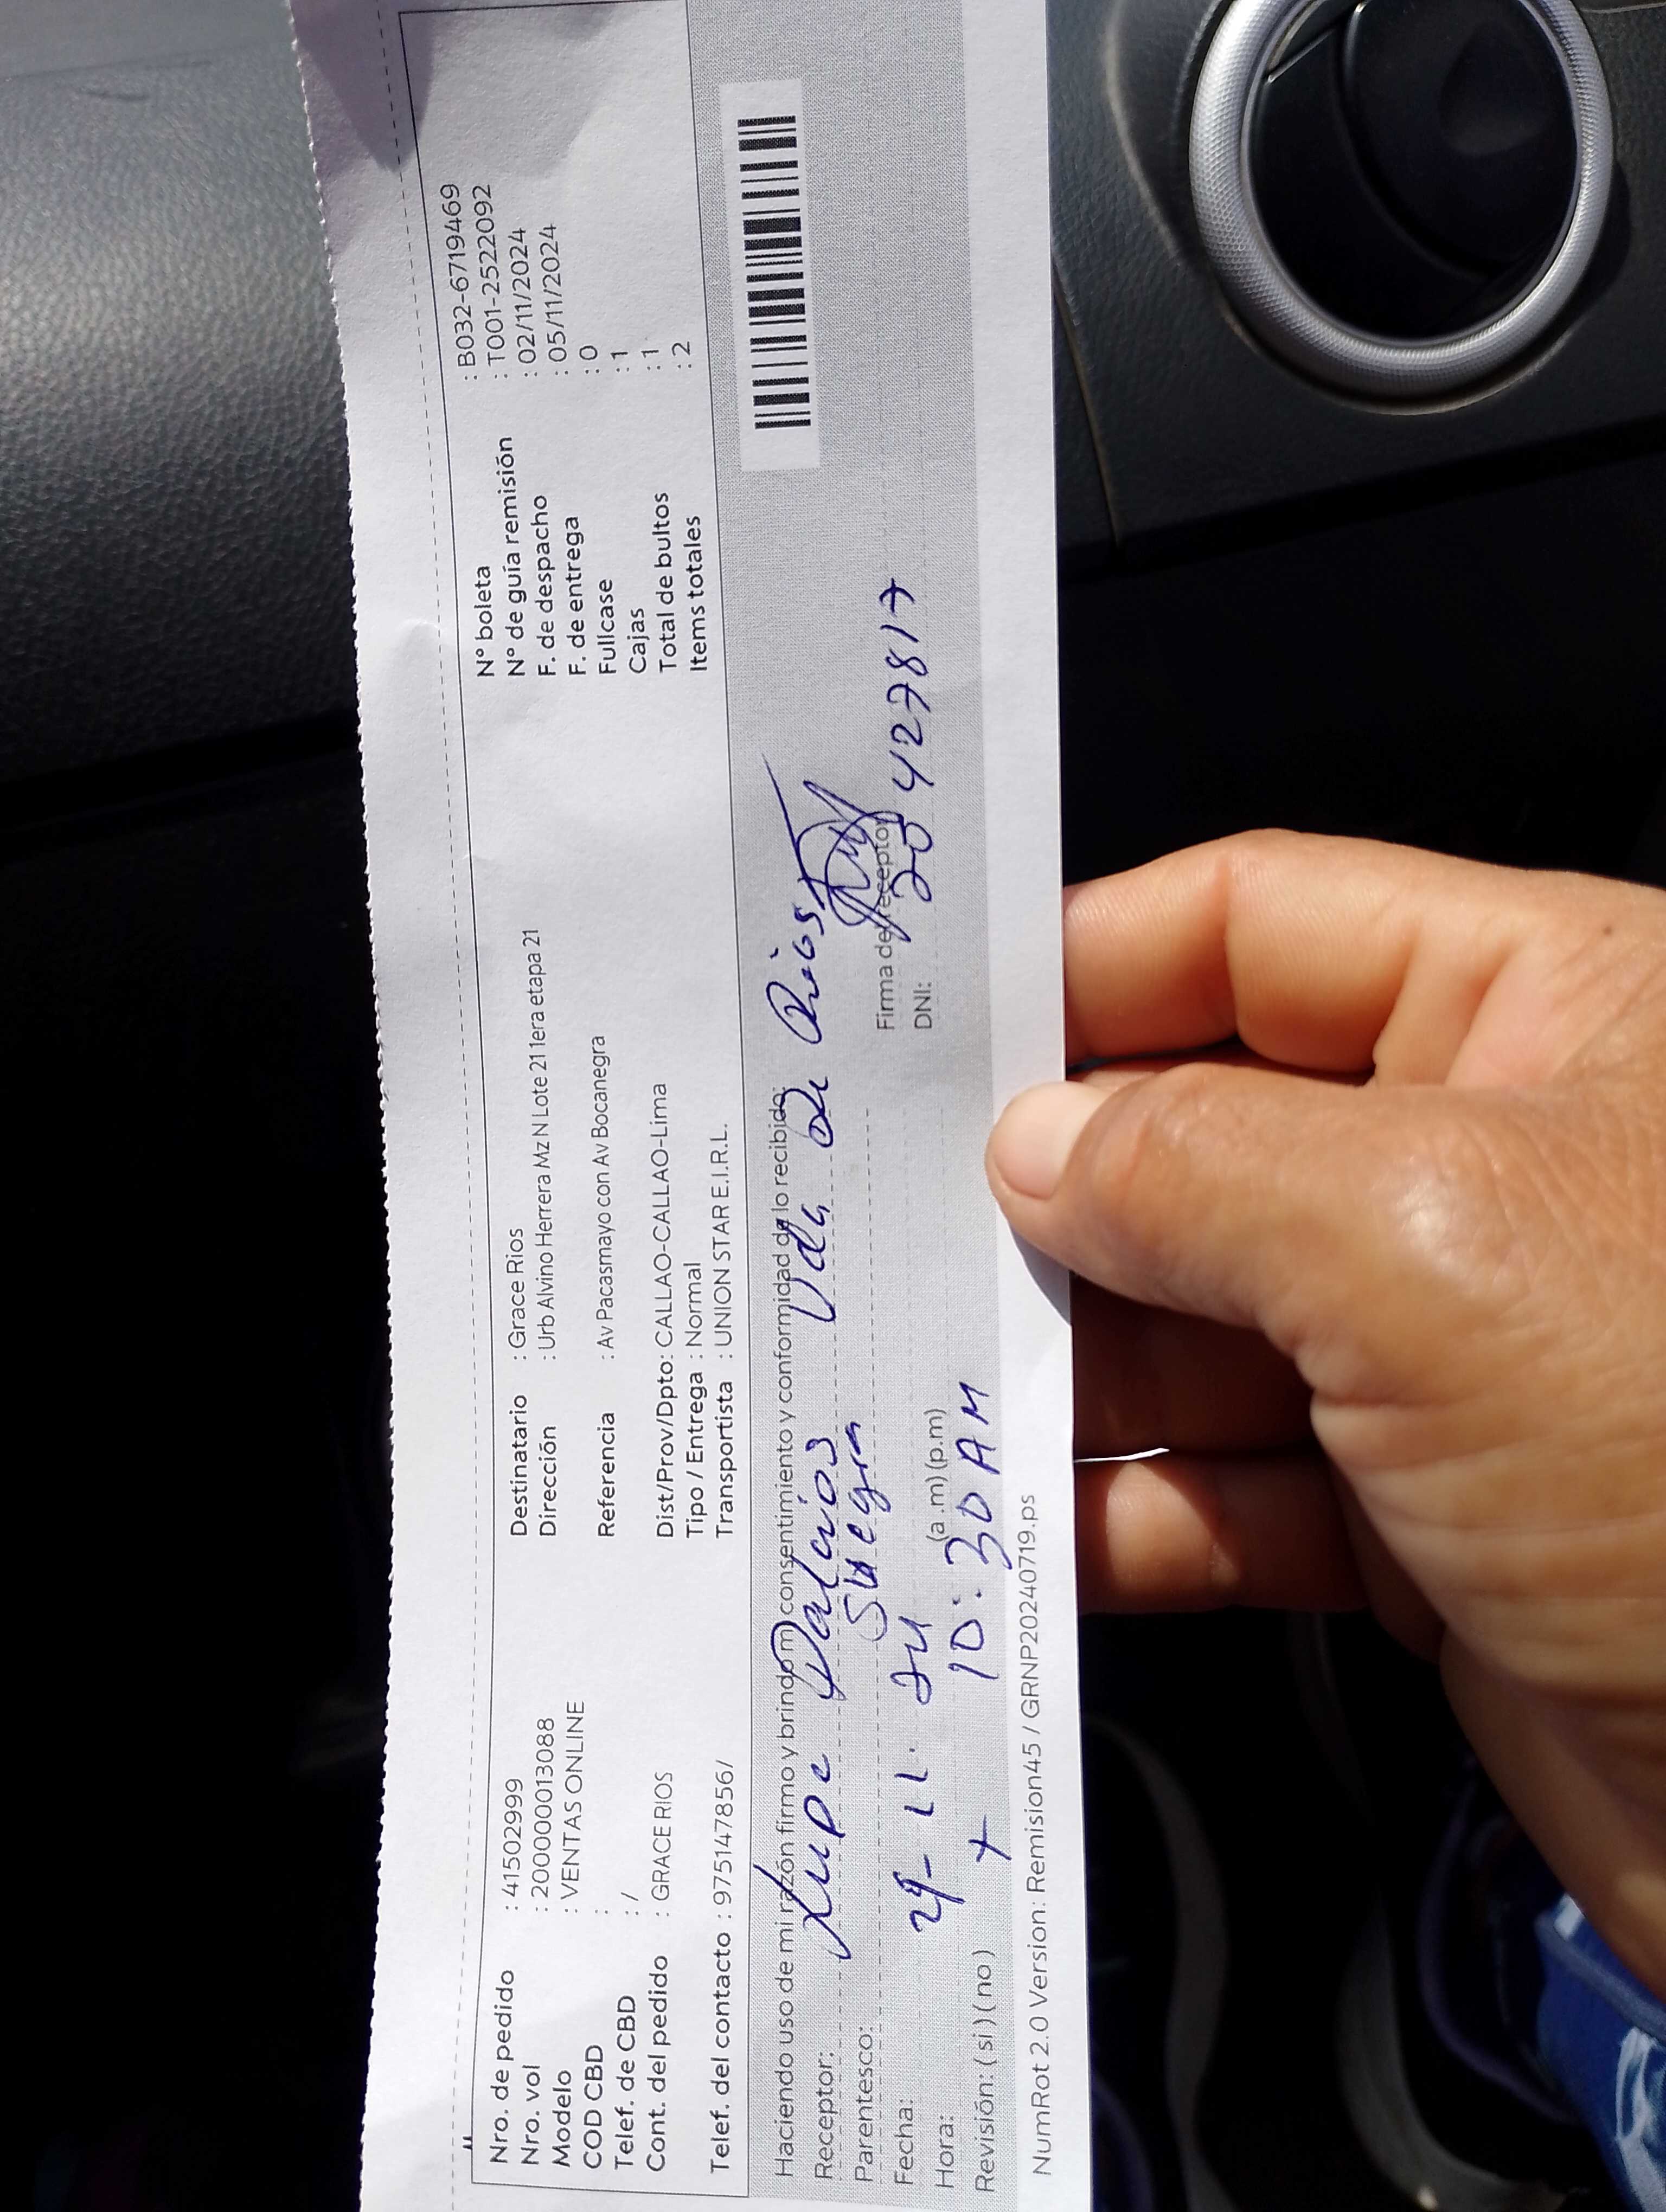 Nro. de pedido : 41502999
Nro. vol : 2000000013088
Modelo : VENTAS ONLINE
COD CBD :
Telef. de CBD : /
Cont. del pedido : GRACE RIOS
Telef. del contacto : 975147856/
Destinatario : Grace Rios
Dirección : Urb Alvino Herrera Mz N Lote 21 1era etapa 21
Referencia : Av Pacasmayo con Av Bocanegra
Dist/Prov/Dpto: CALLAO-CALLAO-Lima
Tipo / Entrega : Normal
Transportista : UNION STAR E.I.R.L.
N° boleta : B032-6719469
N° de guía remisión : T001-2522092
F. de despacho : 02/11/2024
F. de entrega : 05/11/2024
Fullcase : 0
Cajas : 1
Total de bultos : 1
Items totales : 2
Haciendo uso de mi razón firmo y brindo mi consentimiento y conformidad de lo recibido:
Receptor: Lupe Palacios Vda de Rios
Parentesco: Suegra
Fecha: 11. 24
Hora: 10:30 AM (a .m) (p.m)
Revisión: ( si ) ( no )
Firma de receptor
DNI: 20427817
NumRot 2.0 Version: Remision45 / GRNP20240719.ps